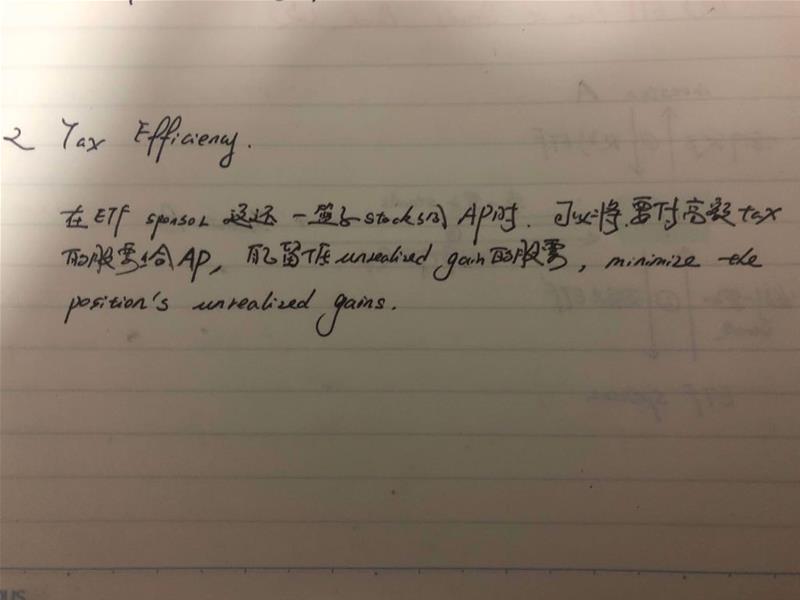 2 Tax Efficiency.
在ETF sponsor 返还一篮子stocks给AP时, 可以将要付高额tax
的股票给AP, 而留低unrealized gain的股票, minimize the
position's unrealized gains.